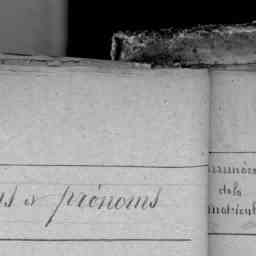 & prénoms
numéros
de la
matricule